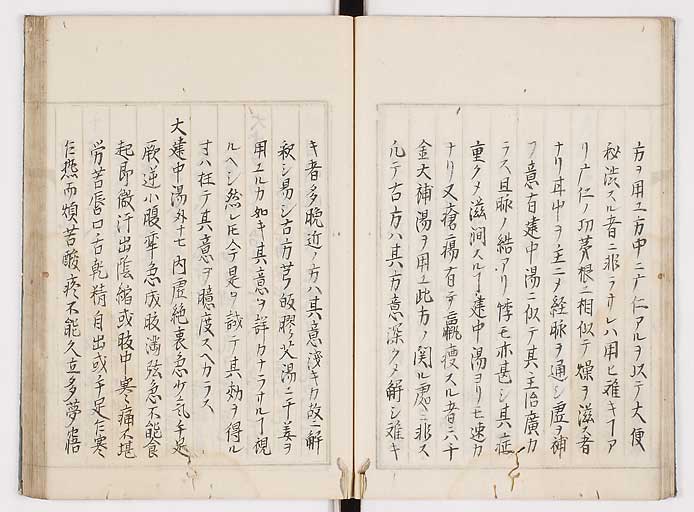 方ヲ用ユ方中ニ广仁アルヲ以テ大便
秘渋スル者ニ非ラサレハ用ヒ難キヿア
リ广仁ノ功茅根ニ相似テ燥ヲ滋ス者
ナリ耳中ヲ主ニメ経脉ヲ通シ虚ヲ補
フ意有建中湯ニ似テ其主治廣カ
ラス且脉ノ結アリ悸モ亦甚シ其症
重クメ滋潤スルヿ建中湯ヨリモ速カ
ナリ又瘡瘍有テ羸痩スル者ニハ千
金大補湯ヲ用ユ此方ノ関ル處ニ非ス
凡テ古方ハ其方意深クメ解シ難キ
キ者多晩近ノ方ハ其意浅キカ故ニ解
釈シ易シ古方芎皈膠艾湯ニ干姜ヲ
用エルカ如キ其意ヲ詳カナラサルヿ視
ルヘシ然レ𪜈今是ヲ試テ其効ヲ得ル
寸ハ枉テ其意ヲ臆度スヘカラス
大建中湯外十七内虚絶裏急少気手足
厥逆小腹弦急或腹満弦急不能食
起即微汗出陰縮或腹中寒痛不堪
労苦唇口舌乾精自出或手足乍寒
乍熱而煩苦酸疼不能久立多夢寤